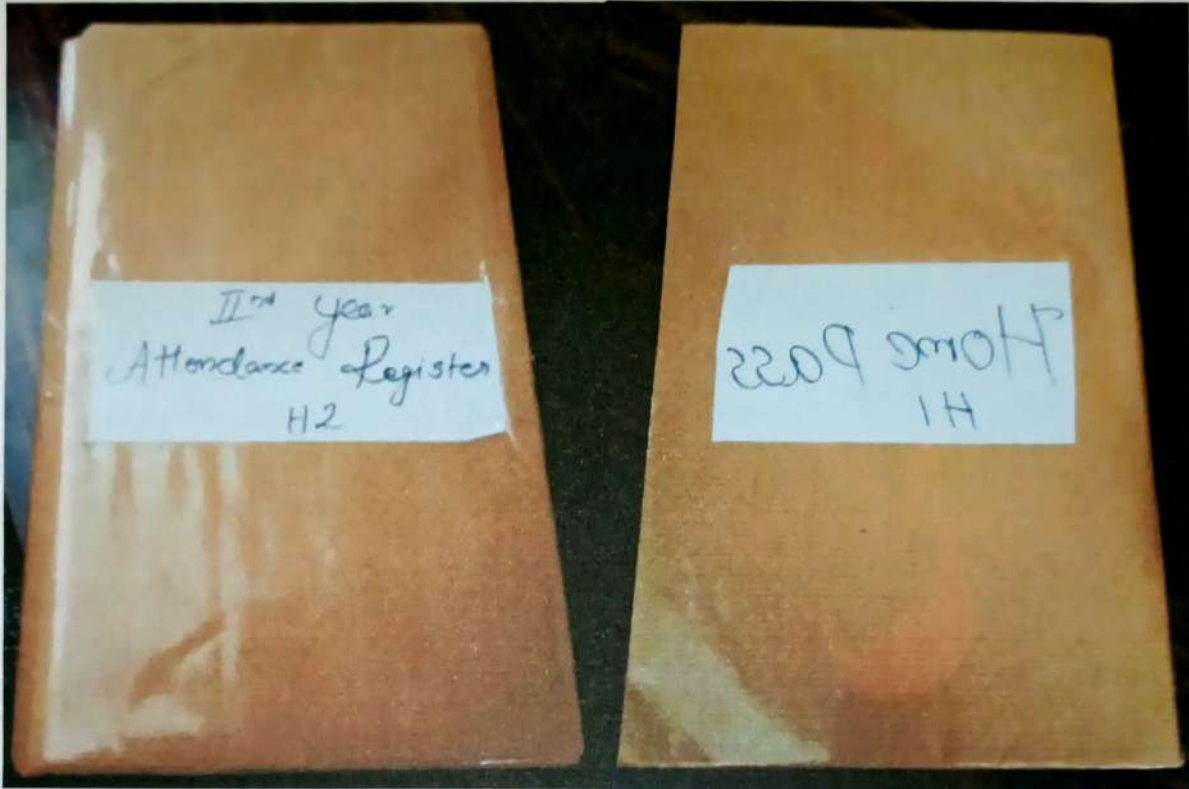 IInd year
Attendance Register
H2
Home Pass
H1